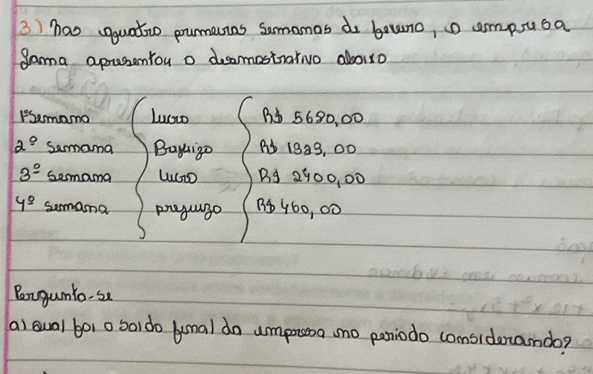 3) nas quatro primeiras semanas de
Gama apresentou o desmostrativo abaixo
1ª semana lucro R$ 5690,00
2º semana R$ 1329,00
3º semana lucro R$ 2400,00
4º semana prejuizo R$ 460,00
Pergunta-se
a) qual foi o saldo final da empresa no periodo considerando?